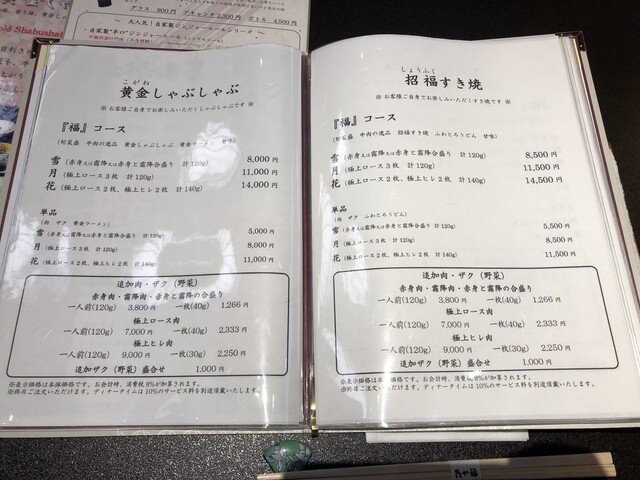 グラス 800円 デキャンタ 2,300円 ボトル 4,500円
～ 大人気！自家製ジンジャーエールシリーズ ～
old Shabusha
こがね
黄金しゃぶしゃぶ
※ お客様ご自身でお楽しみいただくしゃぶしゃぶです ※
『福』コース
(旬菜盛 牛肉の逸品 黄金しゃぶしゃぶ 黄金ラーメン 甘味)
雪 (赤身又は霜降又は赤身と霜降合盛り 計120g) 8,000円
月 (極上ロース3枚 計120g) 11,000円
花 (極上ロース2枚、極上ヒレ2枚 計140g) 14,000円
単品
(肉 ザク 黄金ラーメン)
雪 (赤身又は霜降又は赤身と霜降合盛り 計120g) 5,000円
月 (極上ロース3枚 計120g) 8,000円
花 (極上ロース2枚、極上ヒレ2枚 計140g) 11,000円
追加肉・ザク（野菜）
赤身肉・霜降肉・赤身と霜降の合盛り
一人前(120g) 3,800円 一枚(40g) 1,266円
極上ロース肉
一人前(120g) 7,000円 一枚(40g) 2,333円
極上ヒレ肉
一人前(120g) 9,000円 一枚(30g) 2,250円
追加ザク（野菜）盛合せ 1,000円
※表示価格は本体価格です。お会計時、消費税8%が加算されます。
※終日ご注文いただけます。ディナータイムは10%のサービス料を別途頂戴いたします。
しょうふく
招福すき焼
※ お客様ご自身でお楽しみいただくすき焼です ※
『福』コース
(旬菜盛 牛肉の逸品 招福すき焼 ふわとろうどん 甘味)
雪 (赤身又は霜降又は赤身と霜降合盛り 計120g) 8,500円
月 (極上ロース3枚 計120g) 11,500円
花 (極上ロース2枚、極上ヒレ2枚 計140g) 14,500円
単品
(肉 ザク ふわとろうどん)
雪 (赤身又は霜降又は赤身と霜降合盛り 計120g) 5,500円
月 (極上ロース3枚 計120g) 8,500円
花 (極上ロース2枚、極上ヒレ2枚 計140g) 11,500円
追加肉・ザク（野菜）
赤身肉・霜降肉・赤身と霜降の合盛り
一人前(120g) 3,800円 一枚(40g) 1,266円
極上ロース肉
一人前(120g) 7,000円 一枚(40g) 2,333円
極上ヒレ肉
一人前(120g) 9,000円 一枚(30g) 2,250円
追加ザク（野菜）盛合せ 1,000円
※表示価格は本体価格です。お会計時、消費税8%が加算されます。
※終日ご注文いただけます。ディナータイムは10%のサービス料を別途頂戴いたします。